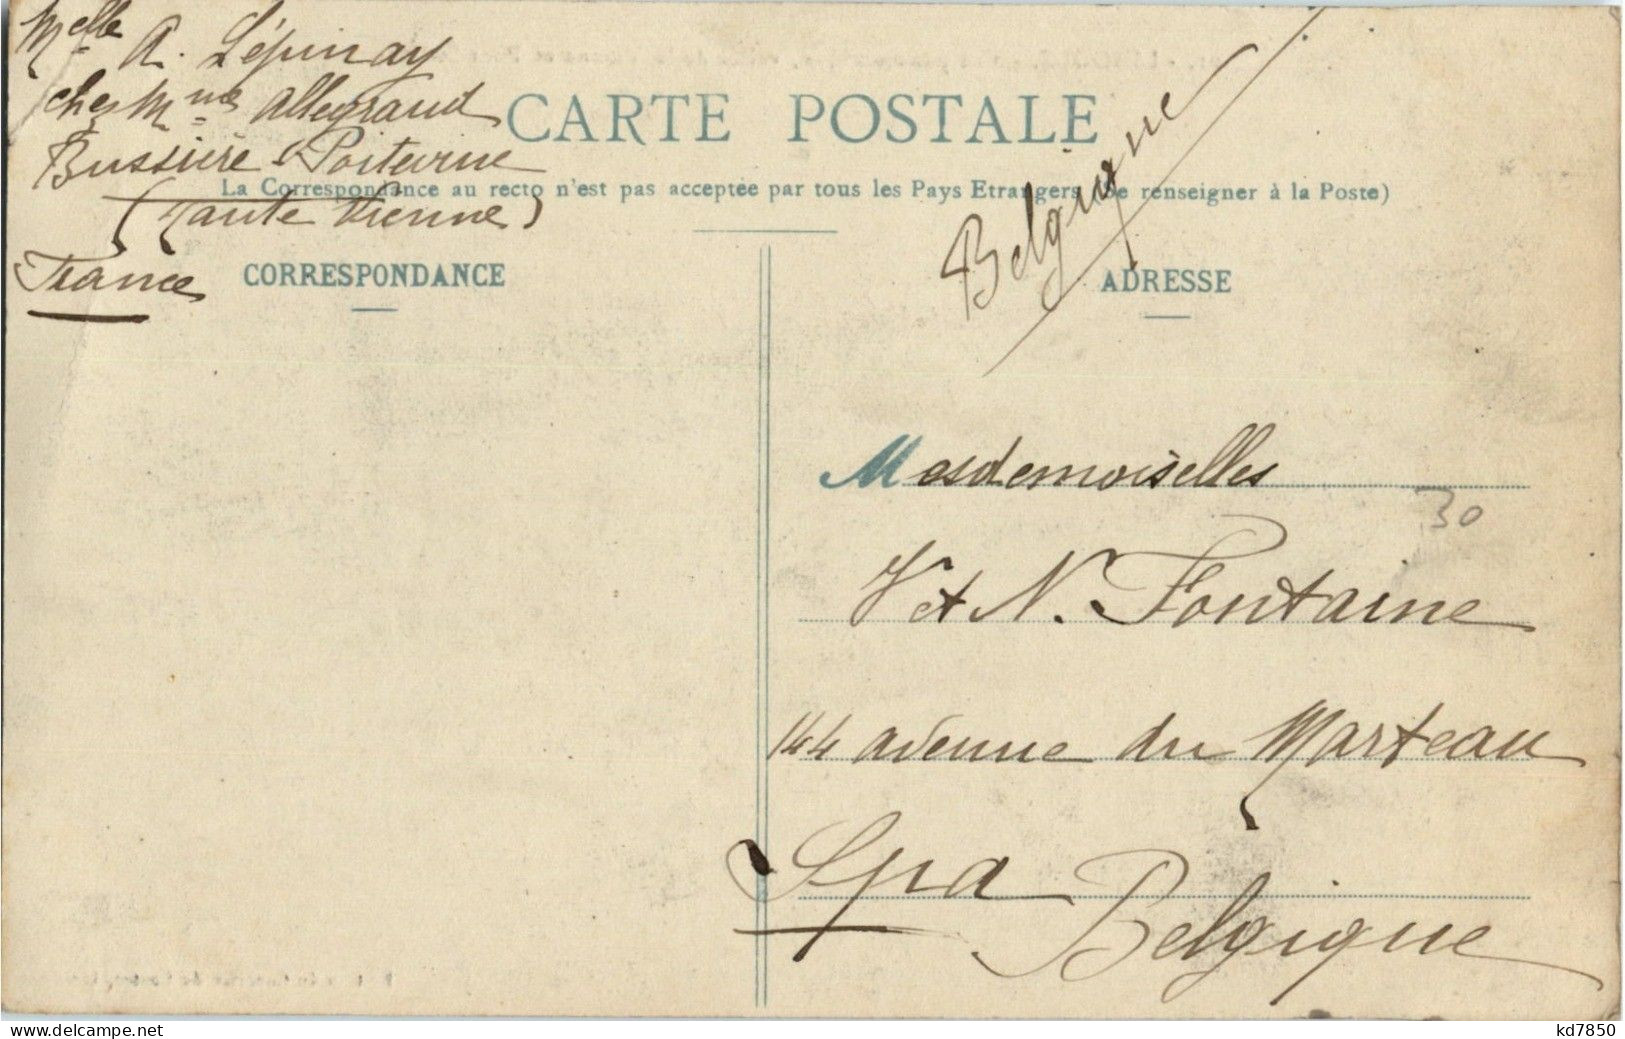 Melle A. Lépinay
chez Mme Allegraud
Bussière-Poitevine
(Haute Vienne)
France
CARTE POSTALE
La Correspondance au recto n'est pas acceptée par tous les Pays Etrangers (Se renseigner à la Poste)
CORRESPONDANCE
Belgique
ADRESSE
Mesdemoiselles
30
V et N. Fontaine
144 avenue du Marteau
Spa
Belgique
kd7850